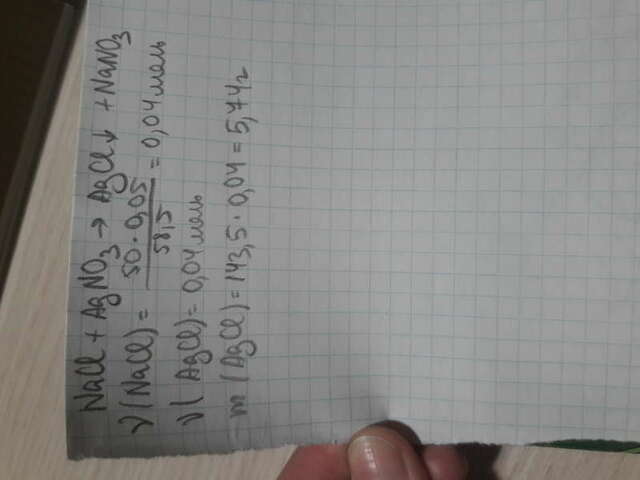 NaCl + AgNO₃ → AgCl↓ + NaNO₃
ν(NaCl) = 50·0,05 / 58,5 = 0,04 моль
ν(AgCl) = 0,04 моль
m(AgCl) = 143,5·0,04 = 5,74 г